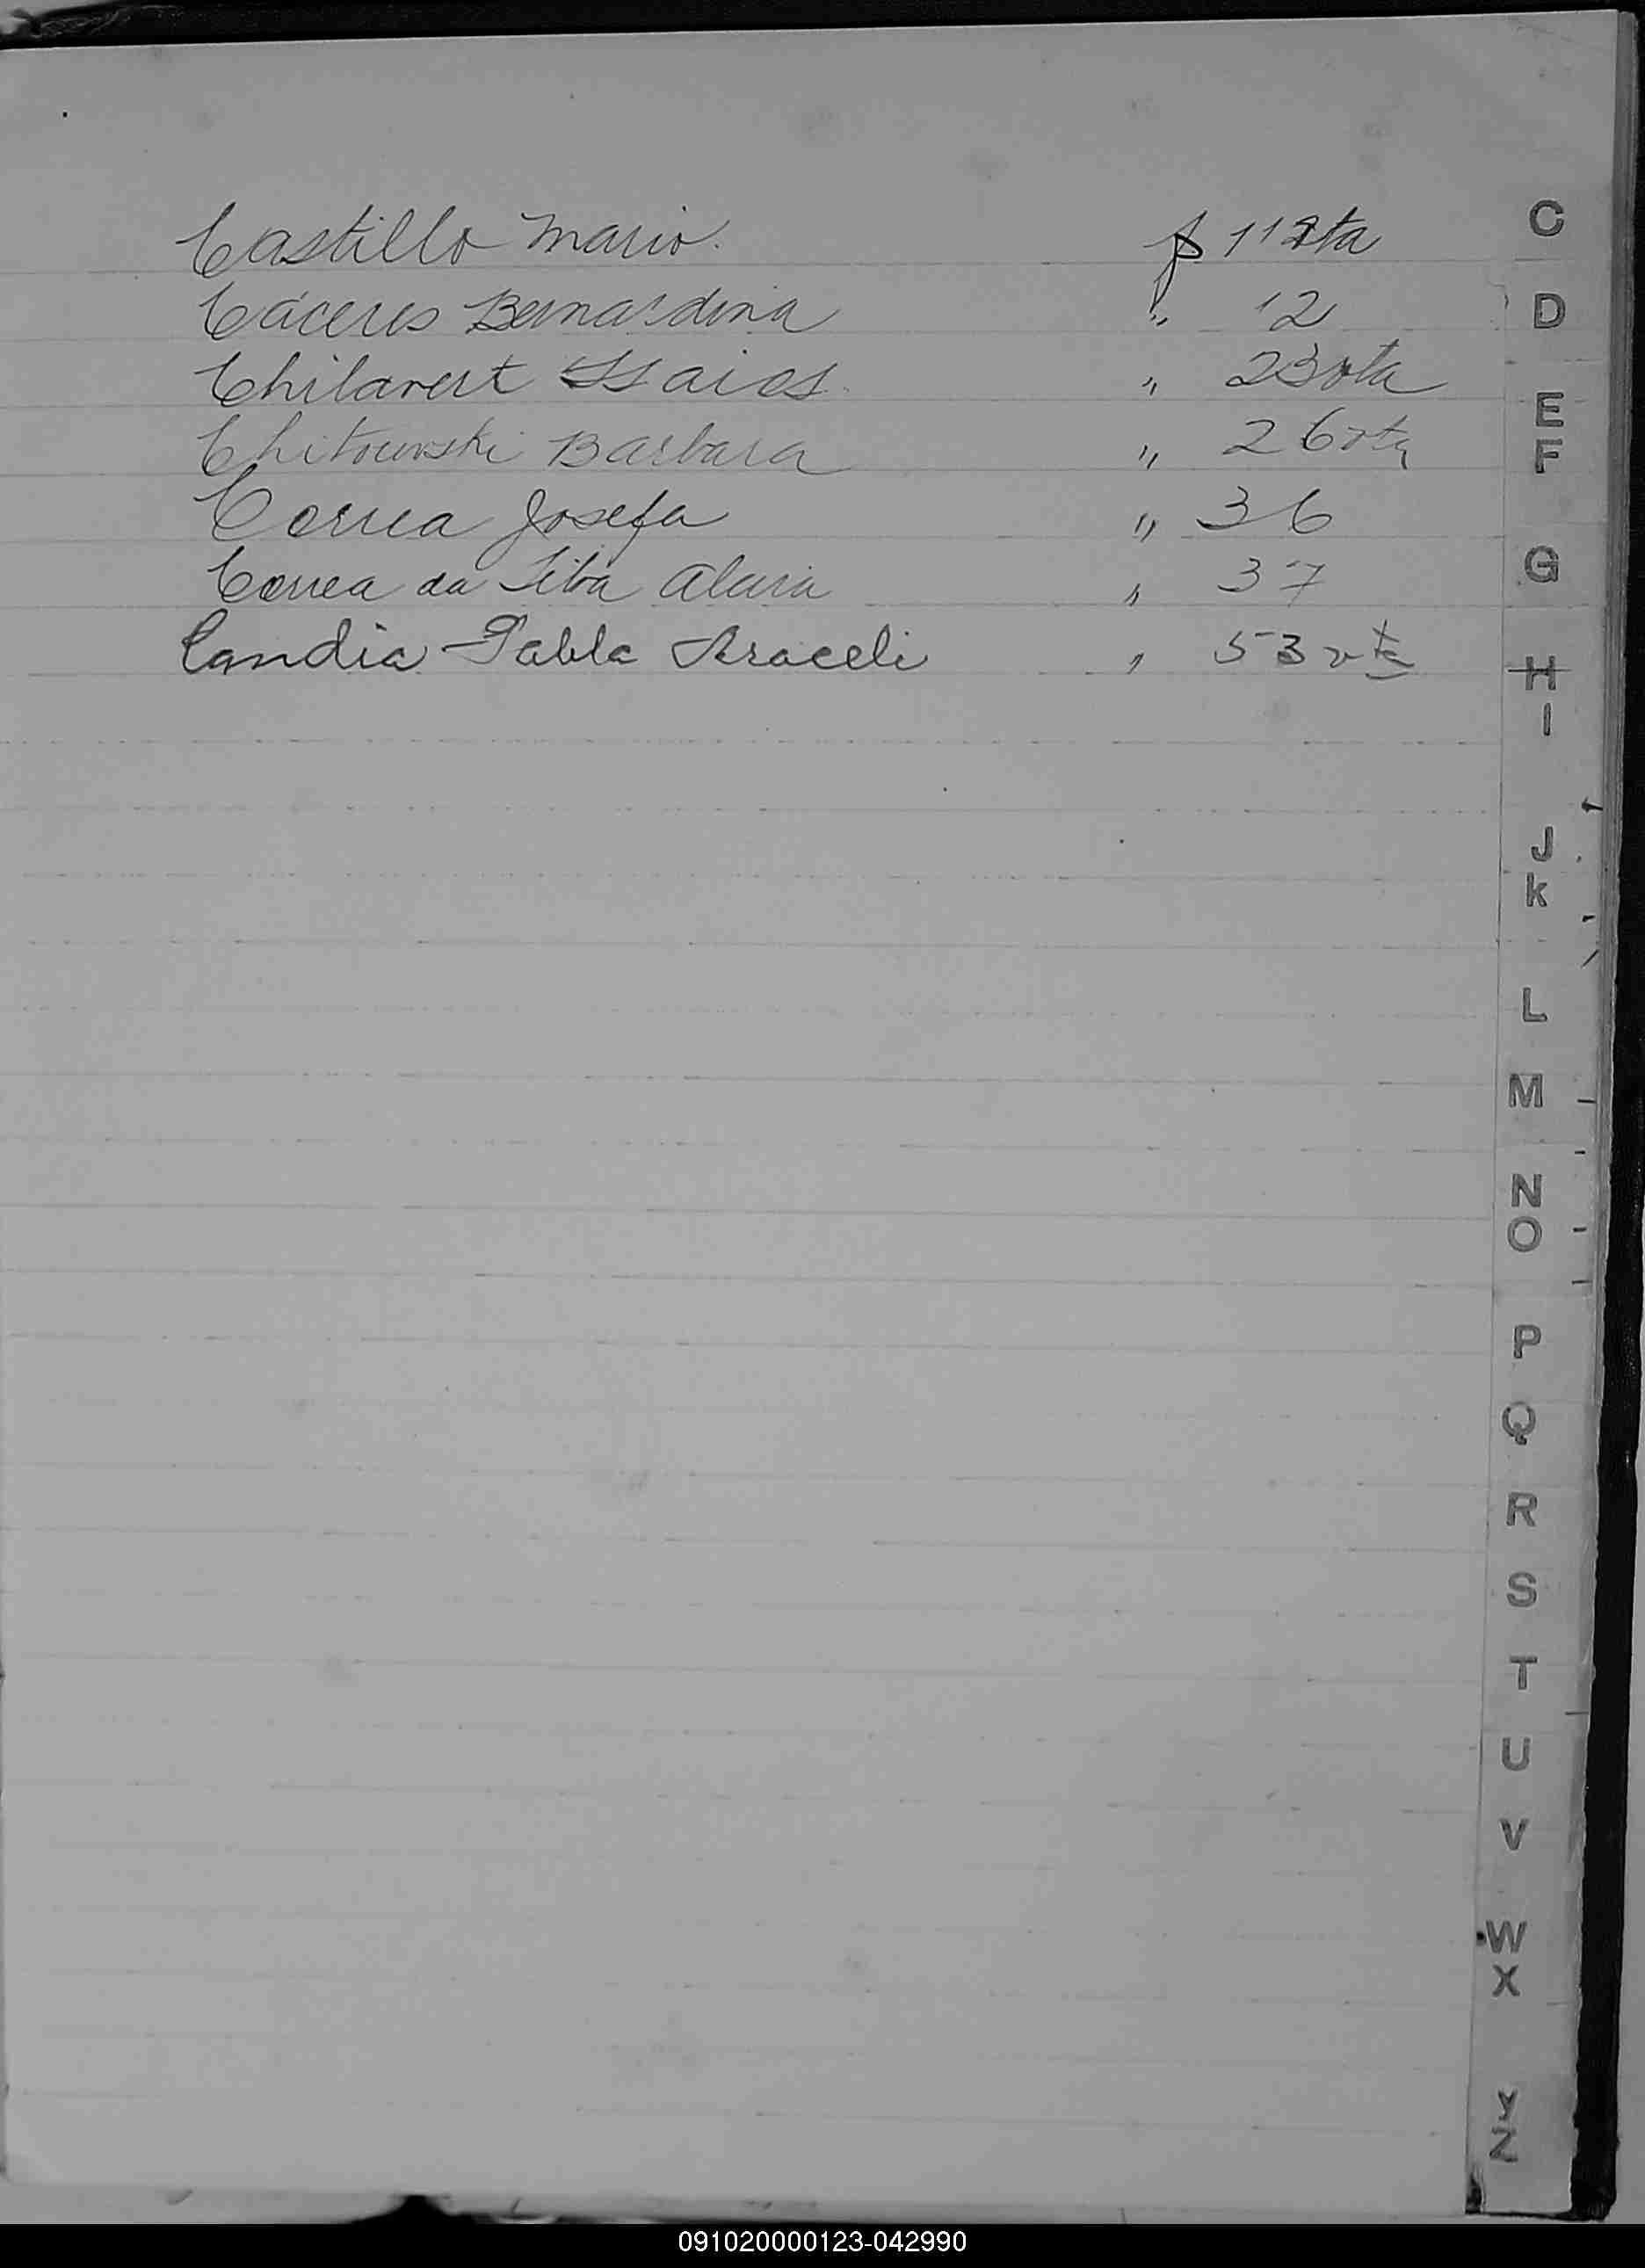 Castillo Mario. f 11 vta
Cáceres Bernardina " 12
Chilavert " 23 vta
Barbara " 26 vta
Correa Josefa " 36
Correa da " 37
Candia Pabla Araceli " 53 vta
C
D
E
F
G
H
I
J
K
L
M
N
O
P
Q
R
S
T
U
V
W
X
Y
Z
091020000123-042990